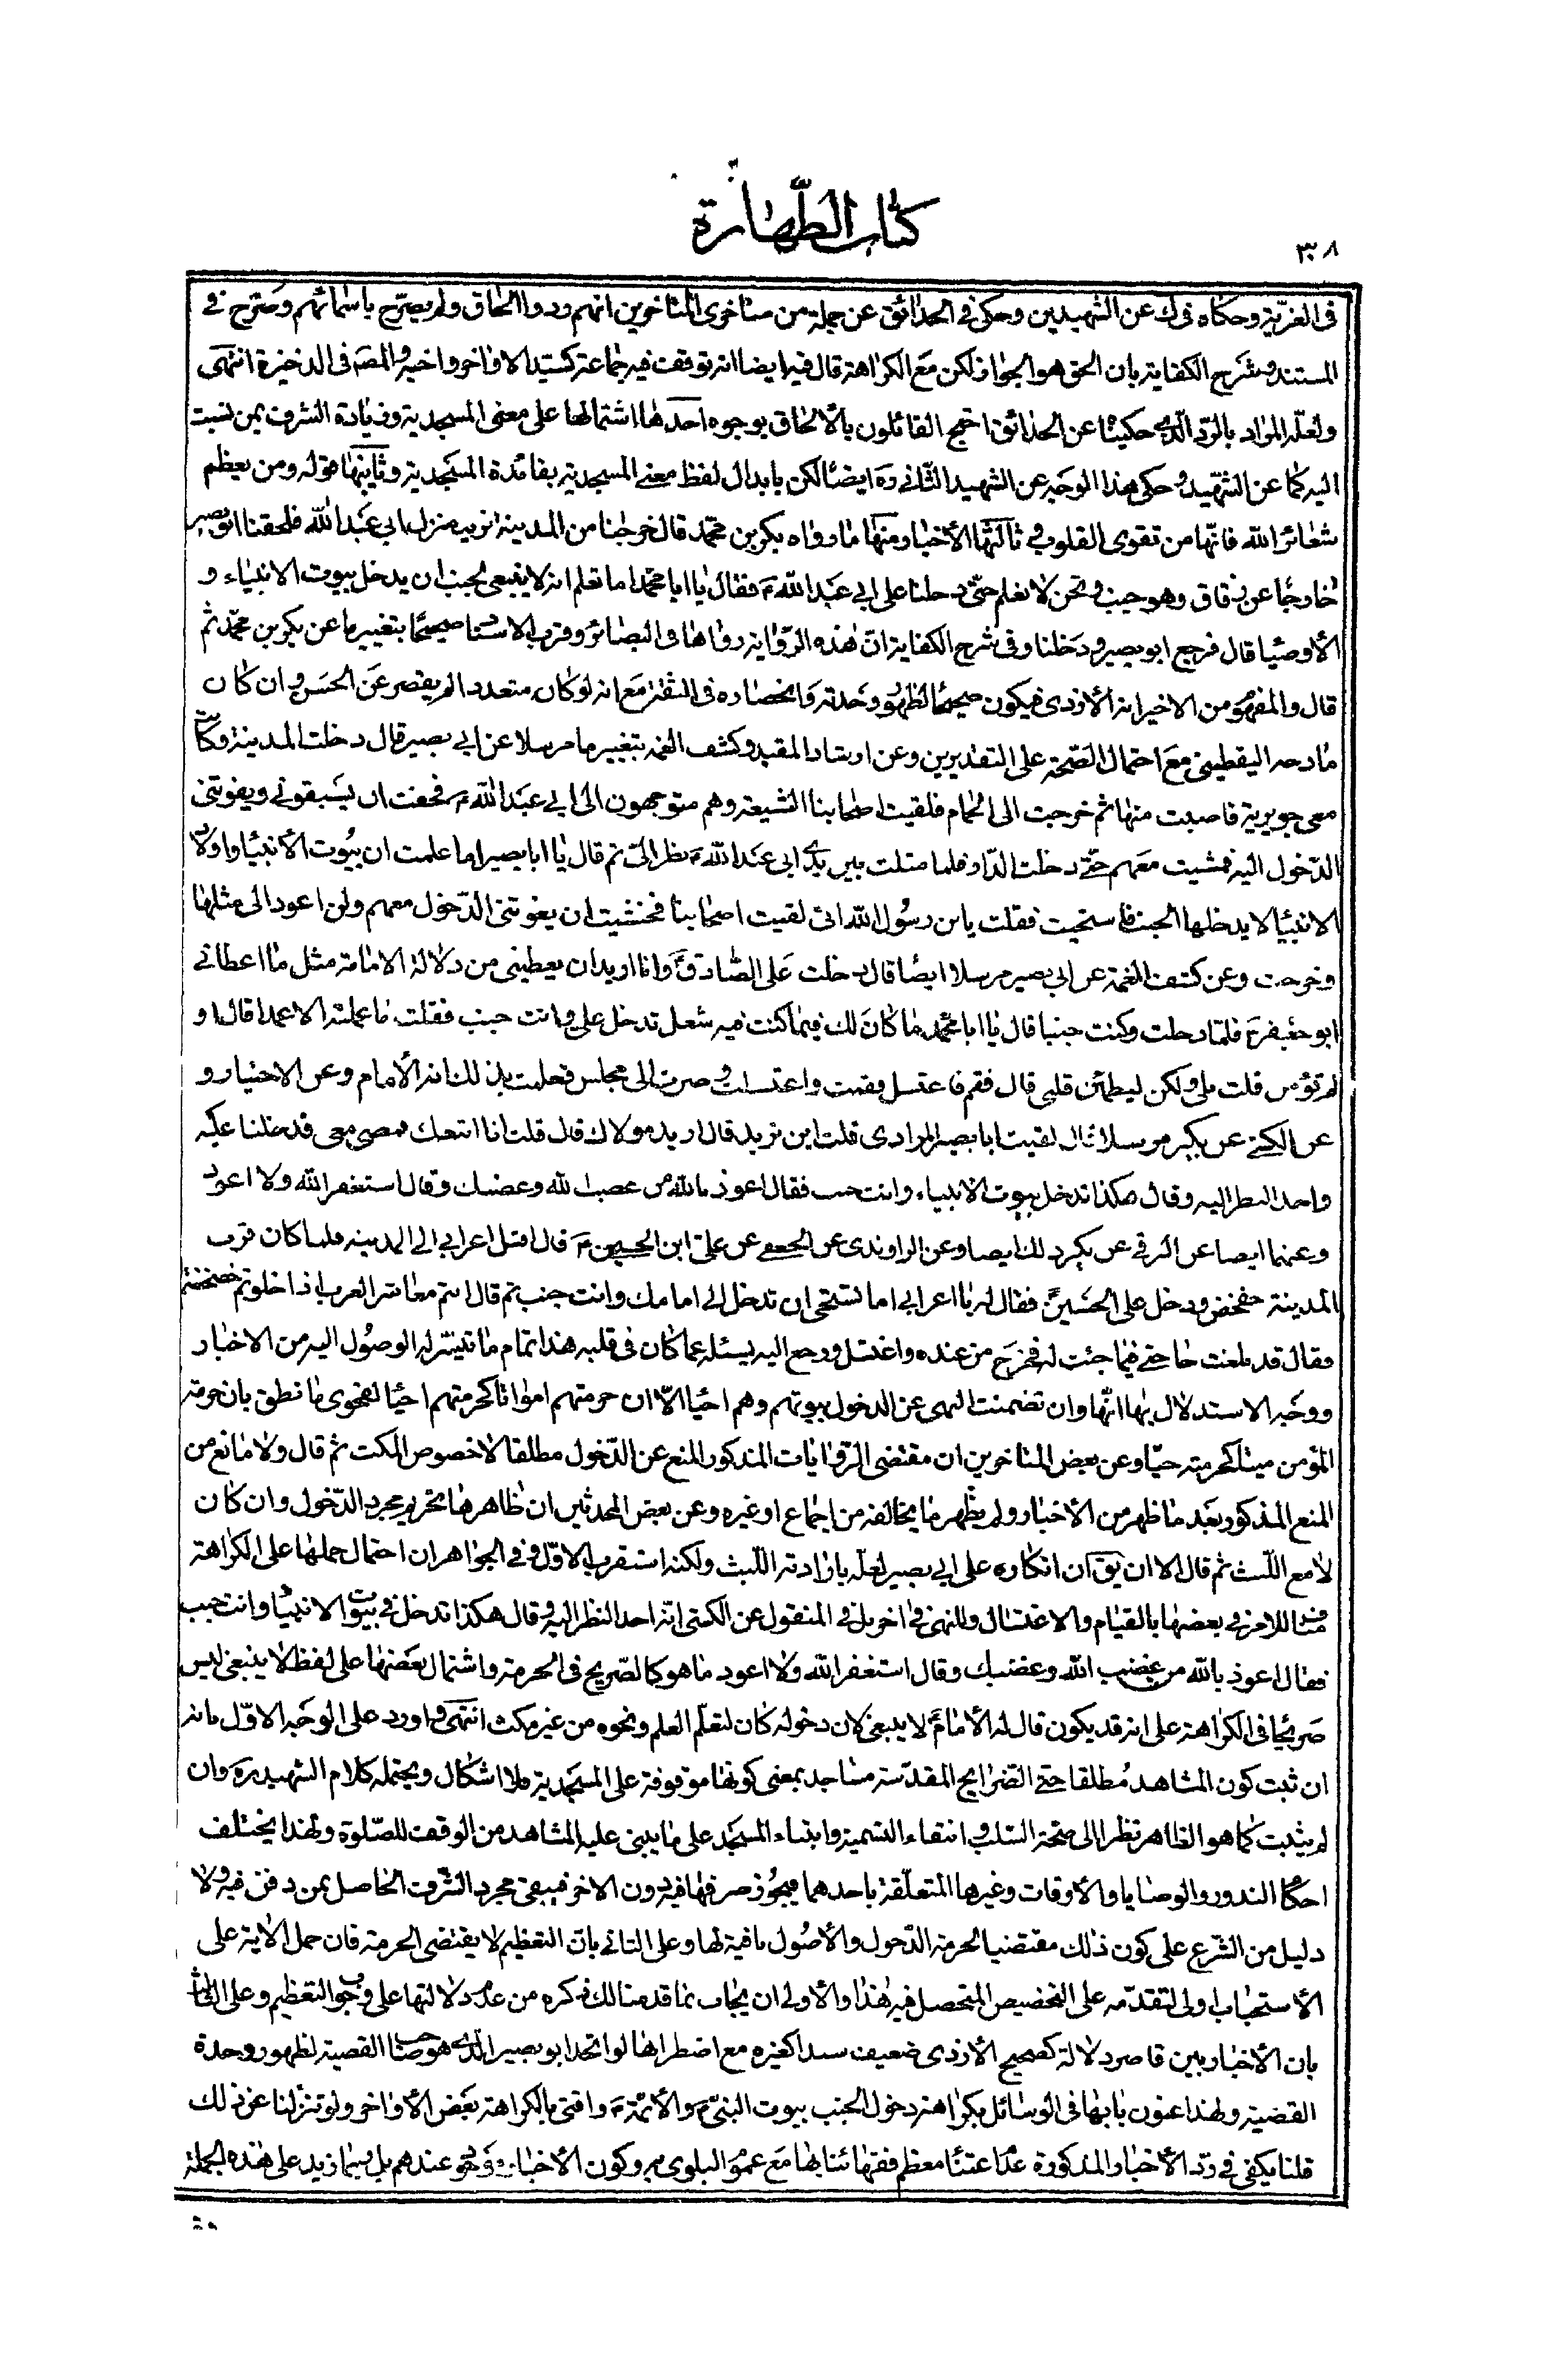 كتاب الطهارة
٣٠٨
فى الغرية وحكاه فى ك عن الشهيدين وحكى فى الحدائق عن جملة من متاخرى المتاخرين انهم ردوا الالحاق ولم يصرح باسمائهم وصرح فى
المستند وشرح الكفاية بان الحق هو الجواز لكن مع الكراهة قال فيه ايضا انه توقف فيه جماعة كسيد الاواخر واخيه والمصه فى الذخيرة انتهى
ولعله المراد بالرد الذى حكيناه عن الحدائق احتج القائلون بالالحاق بوجوه احدها اشتمالها على معنى المسجدية وزيادة الشرف بمن نسبت
اليه كما عن الشهيد وحكى هذا الوجه عن الشهيد الثانى ره ايضا لكن بابدال لفظ معنى المسجدية بفائدة المسجدية وثانيها قوله ومن يعظم
شعائر الله فانها من تقوى القلوب وثالثها الأخبار منها ما رواه بكر بن محمد قال خرجنا من المدينة نريد منزل ابى عبد الله فلحقنا ابو بصير
خارجا عن زقاق وهو جنب ونحن لا نعلم حتى دخلنا على ابى عبد الله ع فقال يا ابا محمد اما تعلم انه لا ينبغى لجنب ان يدخل بيوت الانبياء و
الأوصيا قال فرجع ابو بصير ودخلنا وفى شرح الكفاية ان هذه الرواية رواها فى البصائر وقرب الاسناد صحيحا بتغيير ما عن بكر بن محمد ثم
قال والمفهوم من الاخير انه الأزدى فيكون صحيحا لظهور وحدته وانحصاره فى الثقة مع انه لو كان متعددا لم يقصر عن الحسن وان كان
مادحه اليقطينى مع احتمال الصحة على التقديرين وعن ارشاد المفيد وكشف الغمة بتغيير ما مرسلا عن ابى بصير قال دخلت المدينة وكانت
معى جويرية فاصبت منها ثم خرجت الى الحمام فلقيت اصحابنا الشيعة وهم متوجهون الى ابى عبد الله ع فخفت ان يسبقونى ويفوتنى
الدخول اليه فمشيت معهم حتى دخلت الدار فلما مثلت بين يدى ابى عبد الله ع نظر الى ثم قال يا ابا بصير اما علمت ان بيوت الأنبيا واولاد
الانبيا لا يدخلها الجنب فاستحيت فقلت يابن رسول الله انى لقيت اصحابنا فخشيت ان يفوتنى الدخول معهم ولن اعود الى مثلها
وخرجت وعن كشف الغمة عن ابى بصير مرسلا ايضا قال دخلت على الصادق ع وانا اريد ان يعطينى من دلالة الامامة مثل ما اعطانى
ابو جعفر ع فلما دخلت وكنت جنبا قال يا ابا محمد ما كان لك فيما كنت فيه شغل تدخل على وانت جنب فقلت ما عملته الا عمدا قال او
لم تؤمن قلت بلى ولكن ليطمئن قلبى قال فقم فاغتسل فقمت واغتسلت وصرت الى مجلس فعلمت بذلك انه الأمام وعن الاختيار و
عن الكشى عن بكير مرسلا قال لقيت ابا بصير المرادى قلت اين تريد قال اريد مولاك قال قلت انا اتبعك فمضى معى فدخلنا عليه
واحد النظر اليه وقال هكذا تدخل بيوت الانبياء وانت جنب فقال اعوذ بالله من غضب الله وغضبك وقال استغفر الله ولا اعود
وعنهما ايضا عن البرقى عن بكير ذلك ايضا وعن الراوندى عن الجعفى عن على ابن الحسين ع قال اقبل اعرابى الى المدينة فلما كان قرب
المدينة خضخض ودخل على الحسين ع فقال له يا اعرابى اما تستحيى ان تدخل الى امامك وانت جنب ثم قال انتم معاشر العرب اذا خلوتم خضخضتم
فقال قد بلغت حاجتى فيما جئت له فخرج من عنده واغتسل ورجع اليه يسئله عما كان فى قلبه هذا تمام ما تيسر له الوصول اليه من الاخبار
ووجه الاستدلال بها انها وان تضمنت النهى عن الدخول بيوتهم وهم احيا الا ان حرمتهم امواتا كحرمتهم احيا لفحوى ما نطق بان حرمة
المؤمن ميتا كحرمته حيا وعن بعض المتاخرين ان مقتضى الروايات المذكور المنع عن الدخول مطلقا لا خصوص المكث ثم قال ولا مانع من
المنع المذكور بعد ما ظهر من الأخبار ولم يظهر ما يخالفه من اجماع او غيره وعن بعض المحدثين ان ظاهرها تحريم مجرد الدخول وان كان
لا مع اللبث ثم قال الا ان يق ان انكاره على ابى بصير لعله بارادته اللبث ولكنه استقرب الاول وفى الجواهر ان احتمال حملها على الكراهة
مناف للامر فى بعضها بالقيام والاغتسال والنهى فى اخر بل فى المنقول عن الكشى انه احد النظر اليه وقال هكذا تدخل فى بيوت الانبيا وانت جنب
فقال اعوذ بالله من غضب الله وغضبك وقال استغفر الله ولا اعود ما هو كالصريح فى الحرمة واشتمال بعضها على لفظ لا ينبغى ليس
صريحا فى الكراهة على انه قد يكون قال له الأمام ع لا ينبغى لان دخوله كان لتعلم العلم ونحوه من غير مكث انتهى واورد على الوجه الاول بانه
ان ثبت كون المشاهد مطلقا حتى الضرايح المقدسة مساجد بمعنى كونها موقوفة على المسجدية فلا اشكال ويحتمله كلام الشهيد ره وان
لم يثبت كما هو الظاهر نظرا الى صحة السلب وانتفاء التسمية وابتناء المسجد على ما يبنى عليه المشاهد من الوقف للصلوة ولهذا يختلف
احكام النذور والوصايا والأوقات وغيرها المتعلقة باحدهما فيجوز صرفها فيه دون الاخر فيبقى مجرد الشرف الحاصل بمن دفن فيه ولا
دليل من الشرع على كون ذلك مقتضيا لحرمة الدخول والأصول باقية لها وعلى الثانى بان التعظيم لا يقتضى الحرمة فان حمل الاية على
الأستحباب اولى لتقدمه على التخصيص المتحصل فيه هذا والأولى ان يجاب بما قدمنا لك ذكره من عدم دلالتها على وجوب التعظيم وعلى الثالث
بان الأخبار بين قاصر دلالة كصحيح الأزدى ضعيف سندا كغيره مع اضطرابها لو اتحد ابو بصير الذى هو صاحب القصية لظهور وحدة
القضية ولهذا عنون بابها فى الوسائل بكراهة دخول الجنب بيوت النبى ص والأئمة ع وافتى بالكراهة بعض الأواخر ولو تنزلنا عن ذلك
قلنا يكفى فى رد الأخبار المذكورة عدم اعتناء معظم فقهائنا بها مع عموم البلوى به وكون الأخبار عندهم بل ربما زيد على هذه الجملة